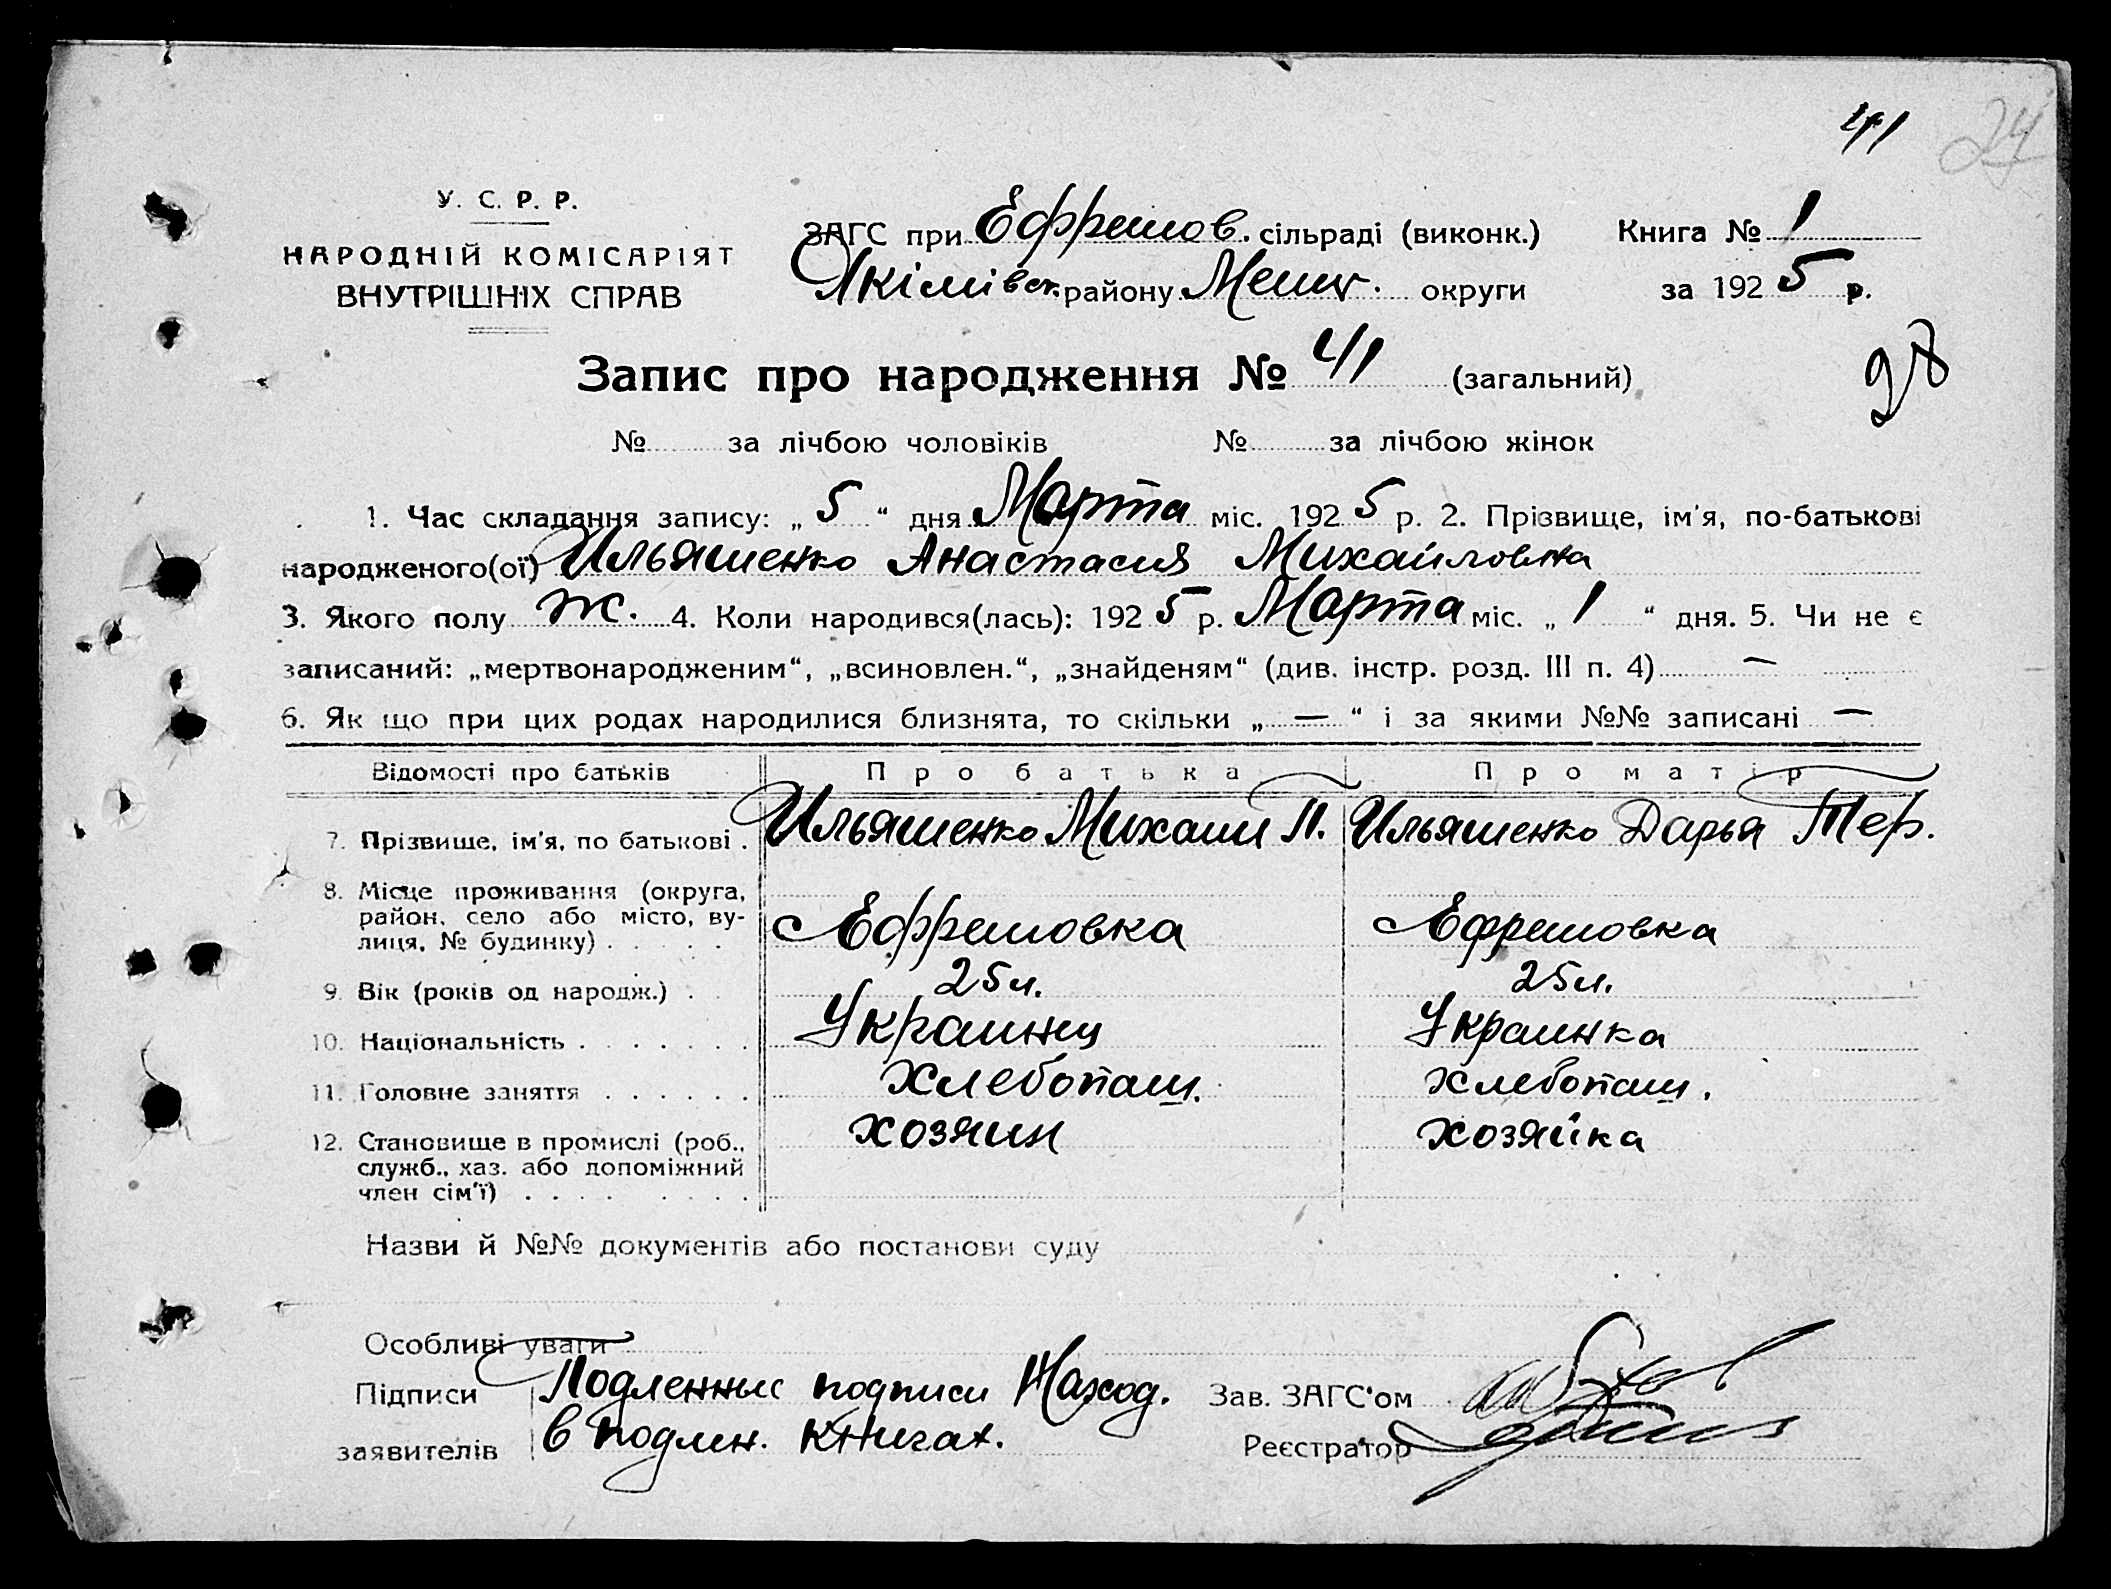 41
24
У. С. Р. Р.
НАРОДНІЙ КОМІСАРІЯТ
ВНУТРІШНІХ СПРАВ
ЗАГС при Ефремов. сільраді (виконк.) Книга № 1
Якімівск. району Мелит. округи за 1925 р.
Запис про народження № 41 (загальний)
98
№ за лічбою чоловіків № за лічбою жінок
1. Час складання запису: „5“ дня Марта міс. 1925 р. 2. Прізвище, ім'я, по-батькові
народженого(ої) Ильяшенко Анастасия Михайловна
3. Якого полу ж. 4. Коли народився(лась): 1925 р. Марта міс. „1“ дня. 5. Чи не є
записаний: „мертвонародженим“, „всиновлен.“, „знайденям“ (див. інстр. розд. III п. 4) —
6. Як що при цих родах народилися близнята, то скільки „—“ і за якими №№ записані —
Відомості про батьків Про батька Про матір
7. Прізвище, ім'я, по батькові . Ильяшенко Михаил П. Ильяшенко Дарья Тер.
8. Місце проживання (округа,
район, село або місто, ву-
лиця, № будинку) . . . . . Ефремовка Ефремовка
9. Вік (років од народж.) . . 25 л. 25 л.
10. Національність . . . . . . . Украинец Украинка
11. Головне заняття . . . . . . Хлебопаш. хлебопаш.
12. Становище в промислі (роб., хозяин хозяйка
служб., хаз. або допоміжний
член сім'ї) . . . . . . . .
Назви й №№ документів або постанови суду
Особливі уваги
Підписи Подленные подписи Наход. Зав. ЗАГС'ом
заявителів в подлен. Книгах. Реєстратор